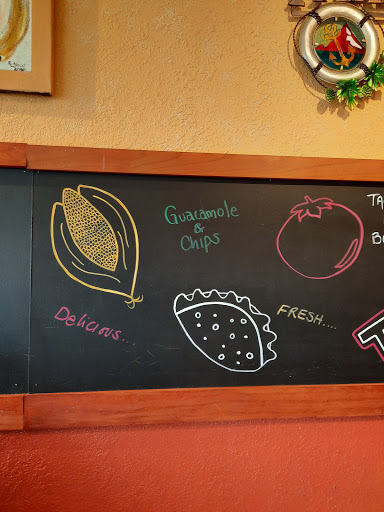 Guacamole
&
Chips
TA
B
Delicious...
FRESH....
T